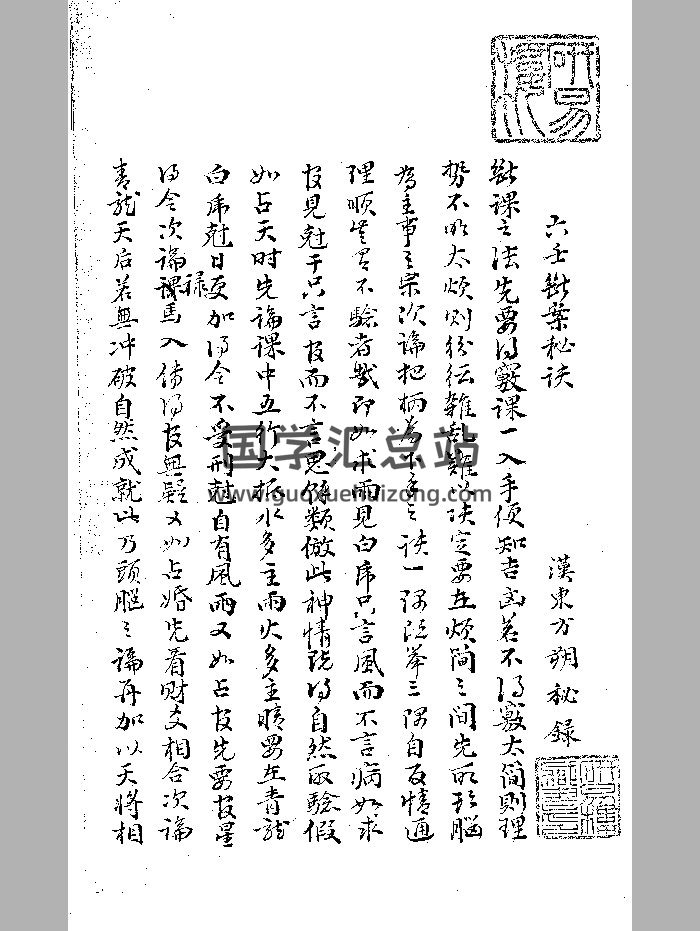 研易
六壬斷案秘诀
漢東方朔秘录
斷課之法先要得竅課一入手便知吉凶若不得竅太简則理
势不明太烦則纷纭雜乱難以诀定要在烦简之间先明頭腦
為主事之宗次論把柄為下手之诀一隅既举三隅自反情通
理顺岂有不驗者哉即如求雨見白虎只言風而不言病如求
官見尅干只言官而不言鬼餘類倣此神情既得自然取驗假
如占天时先論課中五行大抵水多主雨火多主晴要在青龍
白虎尅日更加得令不受刑尅自有風雨又如占官先要官星
得令次論禄馬入传得官無疑又如占婚先看财爻相合次論
青龍天后若無冲破自然成就此乃頭腦之論再加以天將相
国学汇总站
www.guoxuehuizong.com